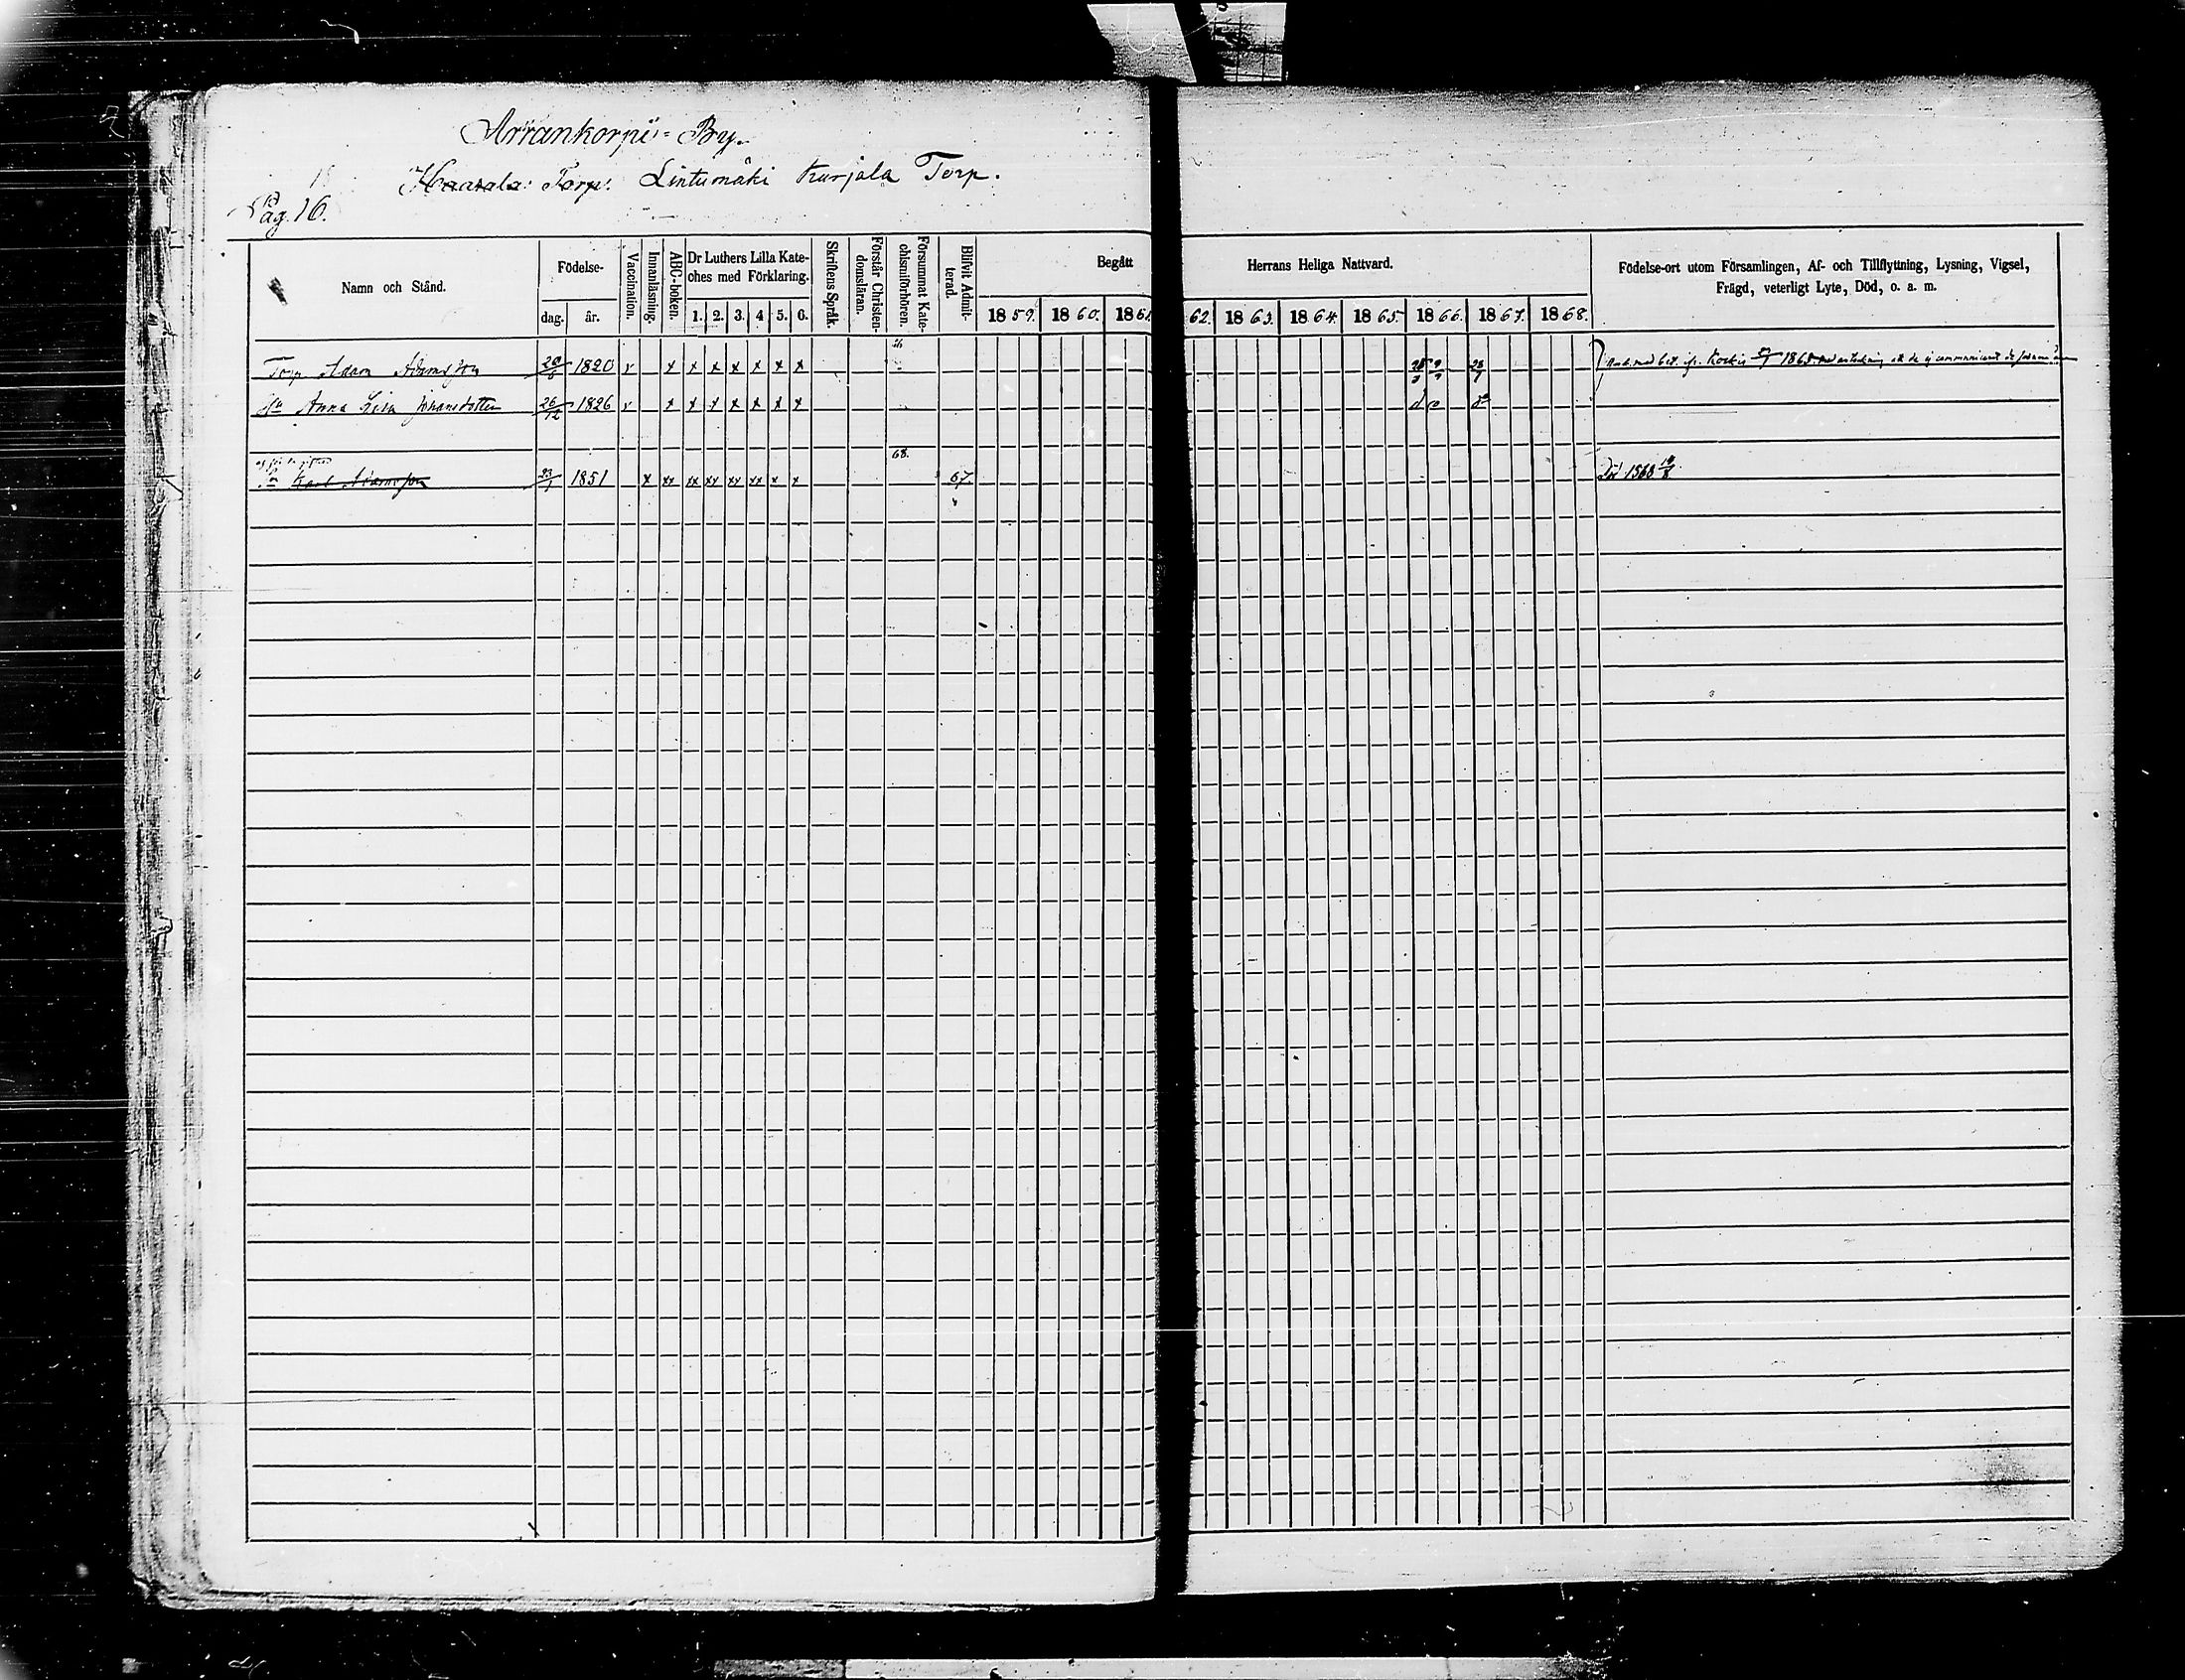 Arrankorpi=By.
Haarala: Torp. Lintumäki Kurjala Torp.
Pag. 16.
Namn och Stånd.
Födelse-
dag. år.
Vaccination.
Innanläsning.
ABC-boken.
Dr Luthers Lilla Kate-
ches med Förklaring.
1. 2. 3. 4 5. 6.
Skriftens Språk.
Förstår Christen-
domsläran.
Försummat Kate-
chismiförhören.
Blifvit Admit-
terad.
Begått Herrans Heliga Nattvard.
1859. 1860. 1861 62. 1863. 1864. 1865. 1866. 1867. 1868.
Födelse-ort utom Församlingen, Af- och Tillflyttning, Lysning, Vigsel,
Frägd, veterligt Lyte, Död, o. a. m.
Torp. Adam Adamsson 1820 v x x x x x x x
Hu Anna Lisa Johansdotter 26/12 1826 v x x x x x x x
68.
Sn Karl Adamsson 23/1 1851 x xx xx xx xx xx x x 67
Död 1868